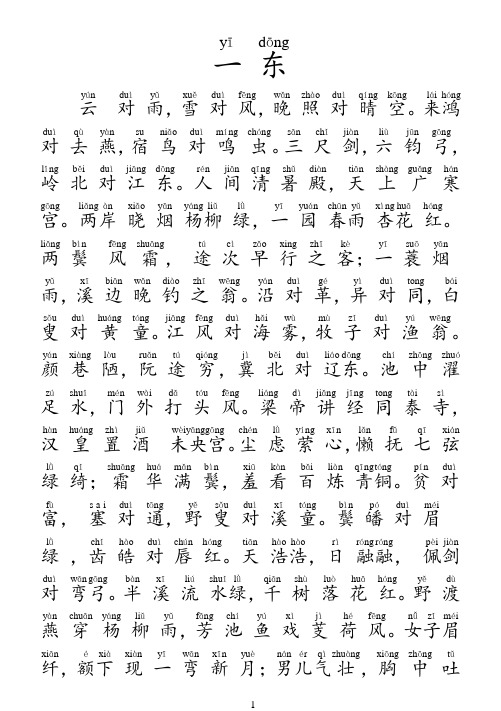 yī dōng
一 东
yún duì yǔ xuě duì fēng wǎn zhào duì qíng kōng lái hóng
云 对 雨，雪 对 风，晚 照 对 晴 空。来鸿
duì qù yàn sù niǎo duì míng chóng sān chǐ jiàn liù jūn gōng
对 去 燕，宿 鸟 对 鸣 虫。三 尺 剑，六 钧 弓，
lǐng běi duì jiāng dōng rén jiān qīng shǔ diàn tiān shàng guǎng hán
岭 北 对 江 东。人 间 清 暑 殿，天 上 广 寒
gōng liǎng àn xiǎo yān yáng liǔ lǜ yī yuán chūn yǔ xìng huā hóng
宫。两岸 晓 烟 杨柳 绿，一 园 春雨 杏花 红。
liǎng bìn fēng shuāng tú cì zǎo xíng zhī kè yī suō yān
两 鬓 风 霜， 途 次 早 行 之 客；一 蓑 烟
yǔ xī biān wǎn diào zhī wēng yán duì gé yì duì tong bái
雨，溪 边 晚 钓 之 翁。沿 对 革，异 对 同，白
sǒu duì huáng tóng jiāng fēng duì hǎi wù mù zǐ duì yú wēng
叟 对 黄 童。江 风 对 海 雾，牧 子 对 渔 翁。
yán xiàng lòu ruǎn tú qióng jì běi duì liáo dōng chí zhōng zhuó
颜 巷 陋，阮 途 穷，冀 北 对 辽东。池 中 濯
zú shuǐ mén wài dǎ tóu fēng liáng dì jiǎng jīng tong tài sì
足 水，门 外 打 头 风。梁 帝 讲 经 同 泰 寺，
hàn huáng zhì jiǔ wèiyānggōng chén lǜ yíng xīn lǎn fǔ qī xián
汉 皇 置 酒 未央宫。尘 虑 萦 心，懒 抚 七 弦
lǜ qǐ shuāng huá mǎn bìn xiū kàn bǎi liàn qīngtóng pín duì
绿 绮；霜 华 满 鬓，羞 看 百 炼 青铜。贫 对
fù sai duì tōng yě sǒu duì xī tóng bìn pó duì méi
富， 塞 对 通，野 叟 对 溪 童。鬓 皤 对 眉
lǜ chǐ hào duì chún hóng tiān hào hào rì róngróng pèi jiàn
绿 ，齿 皓 对 唇 红。天 浩浩，日 融融， 佩剑
duì wāngōng bàn xī liú shuǐ lǜ qiān shù luò huā hóng yě dù
对 弯弓。半 溪 流 水绿，千 树 落 花 红。野 渡
yàn chuān yáng liǔ yǔ fāng chí yú xì jì hé fēng nǚ zǐ méi
燕 穿 杨 柳 雨，芳 池 鱼 戏 芰 荷 风。女子眉
xiān é xià xiàn yī wān xīn yuè nán ér qì zhuàng xiōng zhōng tǔ
纤，额下 现 一 弯 新 月；男儿气 壮，胸 中 吐
1